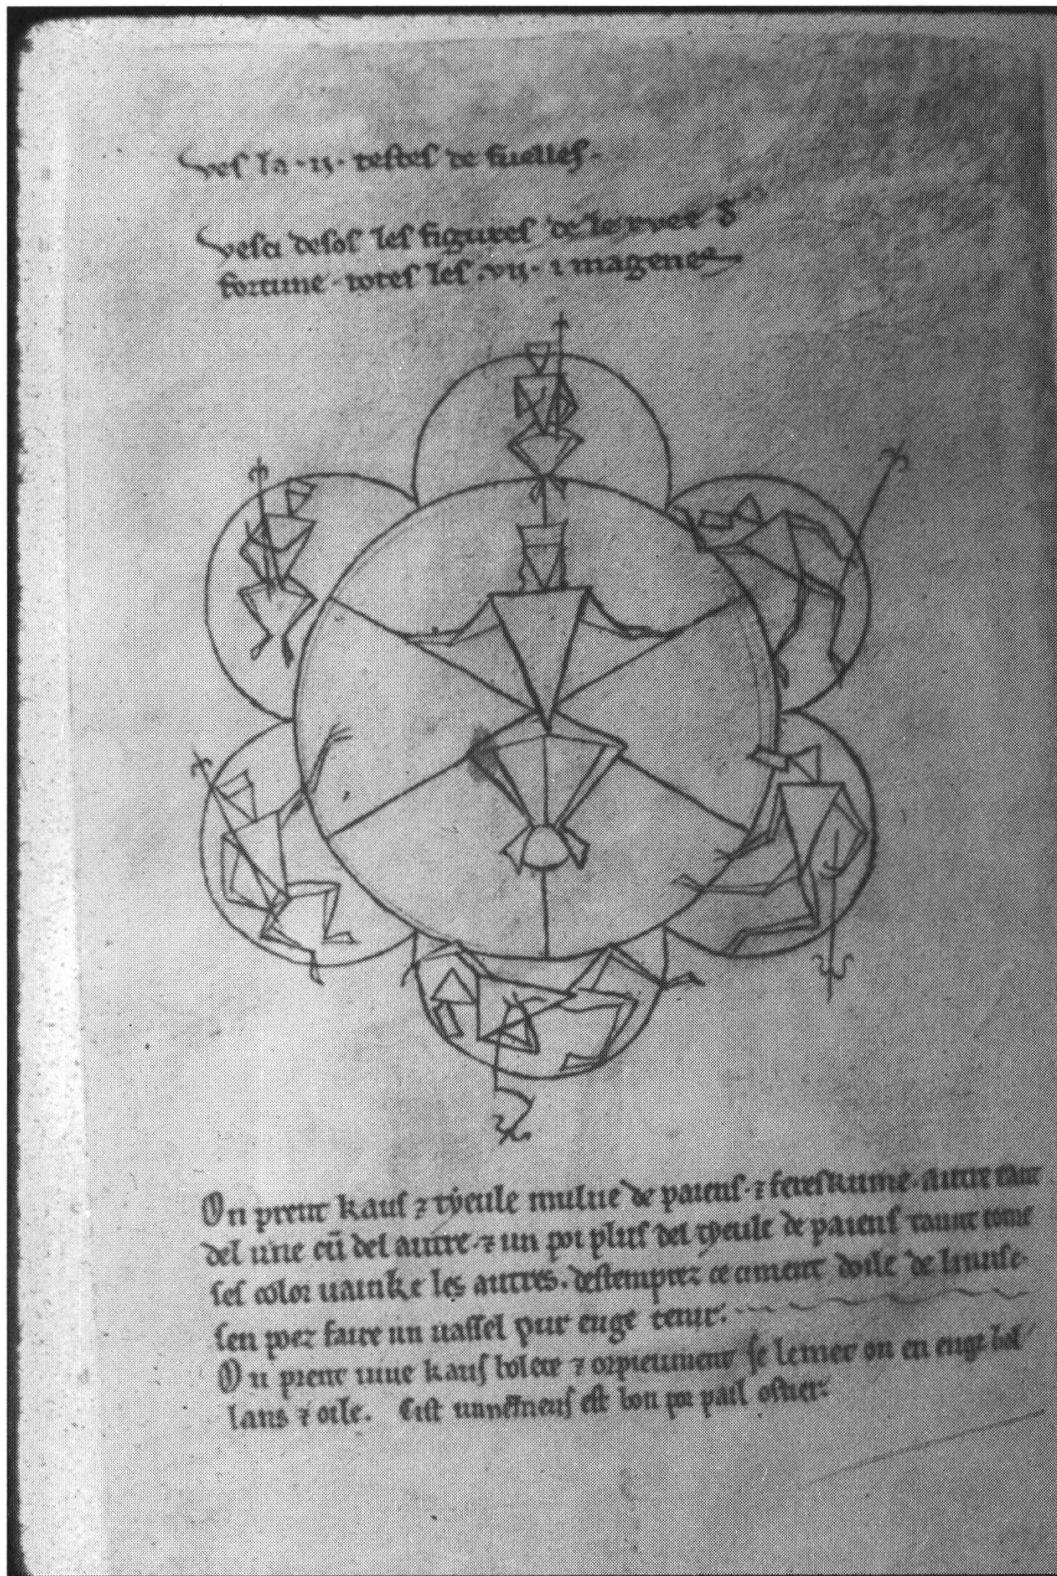 ves la .ij. testes de fuelles.
vesci desos les figures de le ruee d
fortune . totes les .vij. imagenes
On prent kaus ⁊ tyeule mulue de paiens . ⁊ feres kume . autre tant
del une cū del autre . ⁊ un poi plus del tyeule de paiens tannt come
ses color uainke les autres . destemprez ce ciment doile de linuse .
sen poez faire un uassel pur euge tenir .
On prent uiue kaus bolete ⁊ orpieument se le met on en euge bol
lans ⁊ oile . Cist unnemens est bon por pail oster .